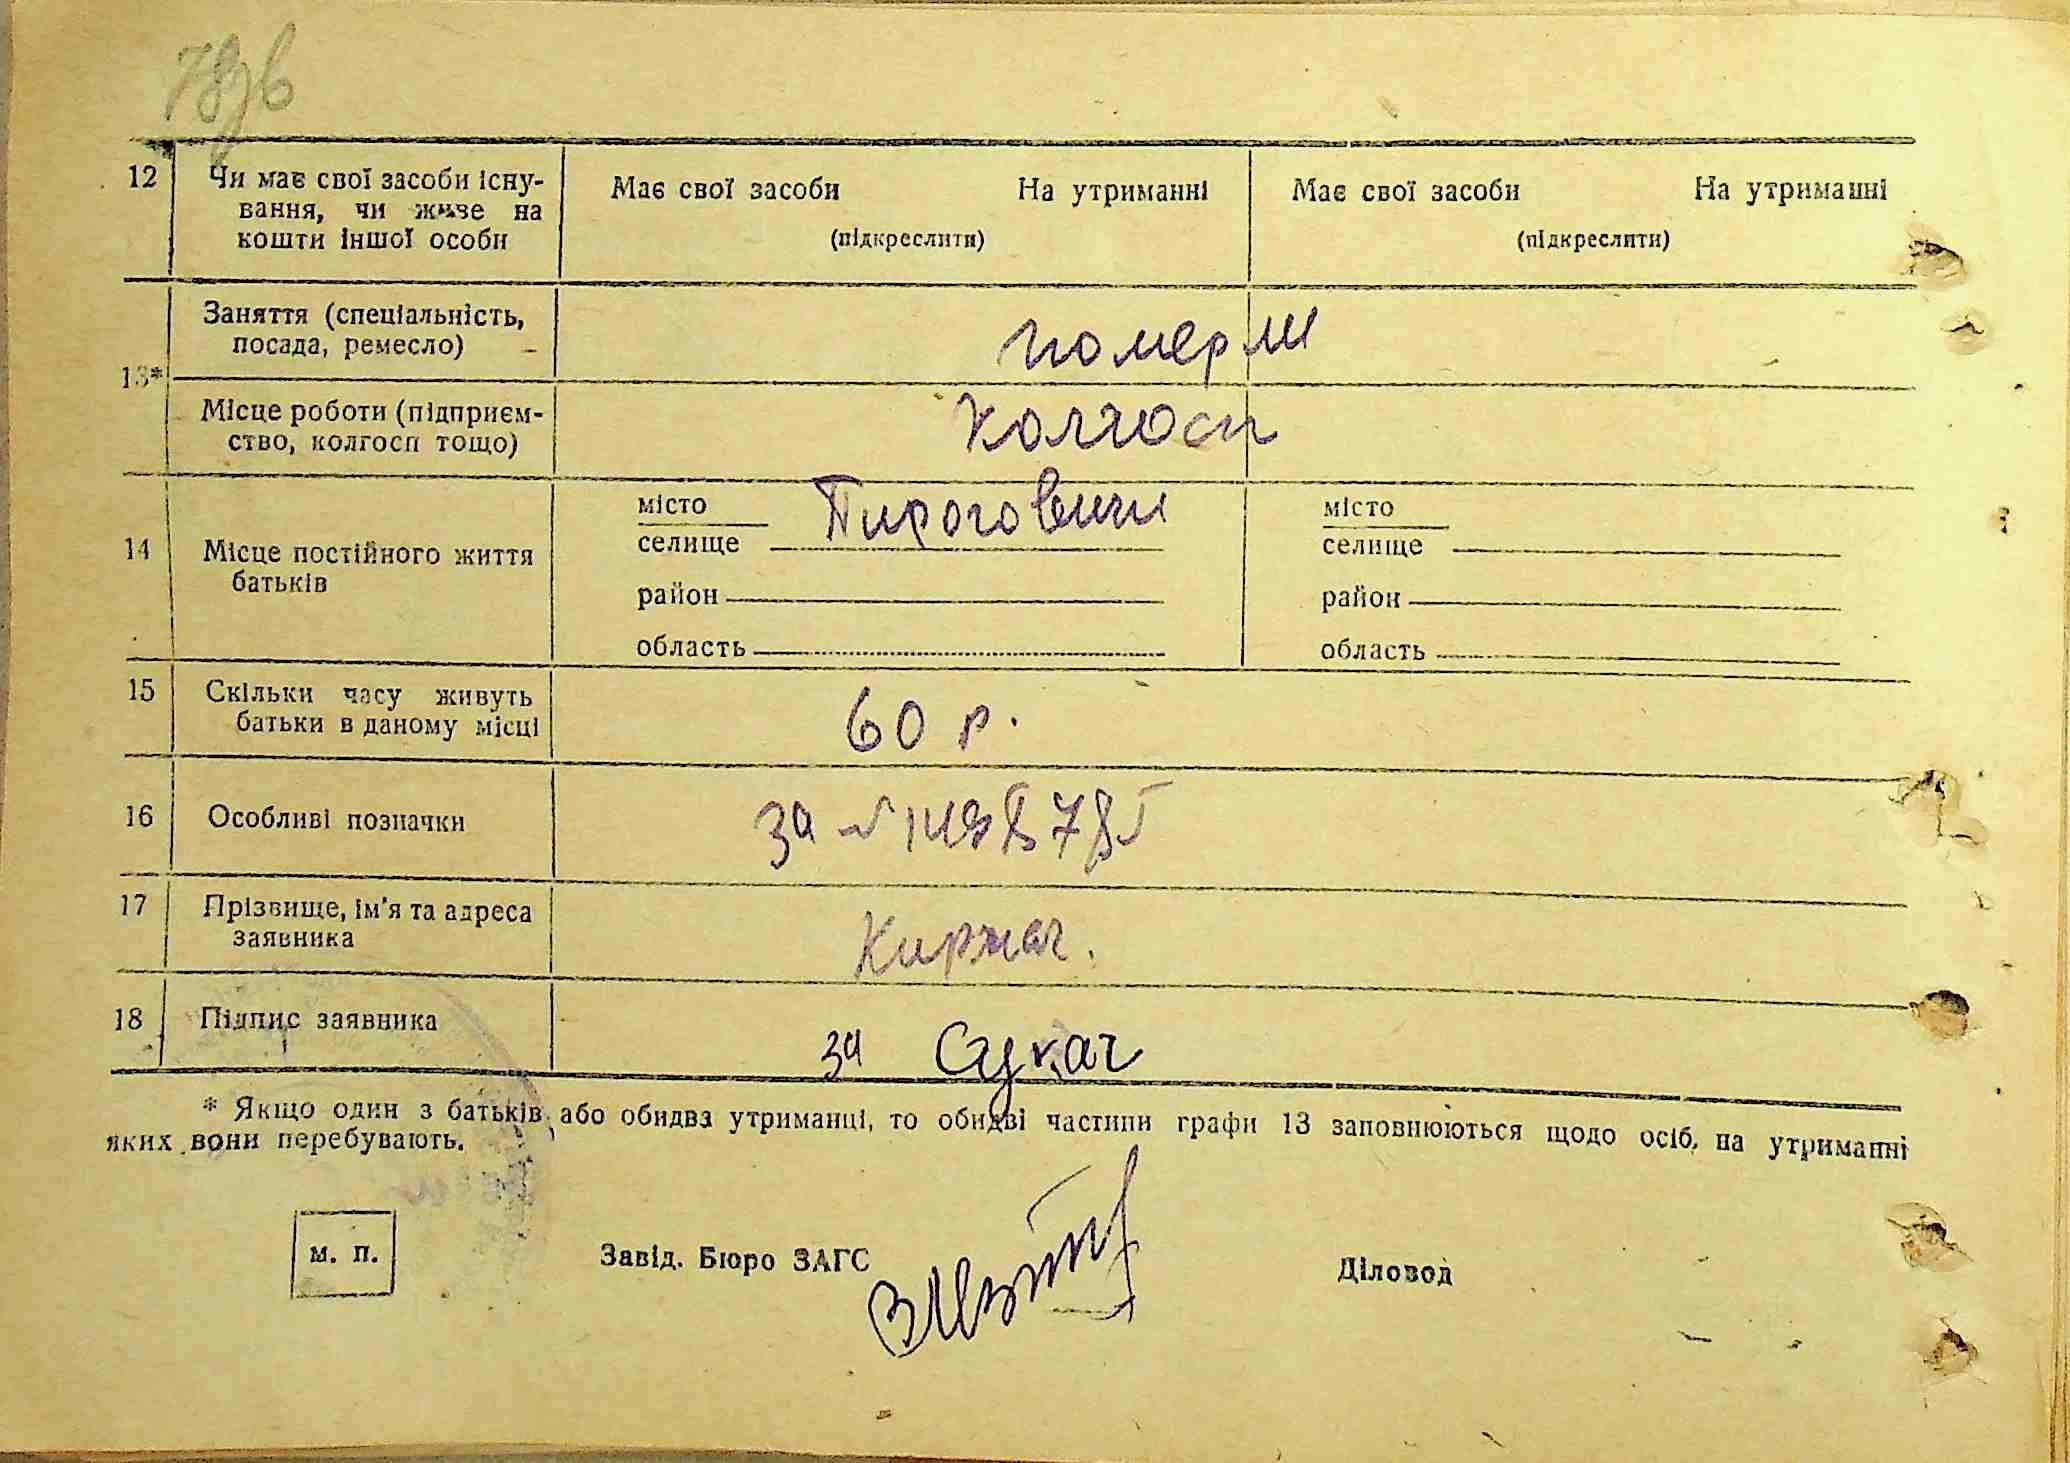 12 Чи має свої засоби існу-
вання, чи живе на
кошти іншої особи
Має свої засоби На утриманні
(підкреслити)
Має свої засоби На утриманні
(підкреслити)
13*
Заняття (спеціальність,
посада, ремесло)
померли
Місце роботи (підприєм-
ство, колгосп тощо)
колгосп
14 Місце постійного життя
батьків
місто
селище Пироговичи
район
область
місто
селище
район
область
15 Скільки часу живуть
батьки в даному місці
60 р.
16 Особливі позначки
за
17 Прізвище, ім'я та адреса
заявника
Киржач.
18 Підпис заявника
за Сукач
* Якщо один з батьків або обидва утриманці, то обидві частини графи 13 заповнюються щодо осіб, на утриманні
яких вони перебувають.
м. п.
Завід. Бюро ЗАГС
Діловод